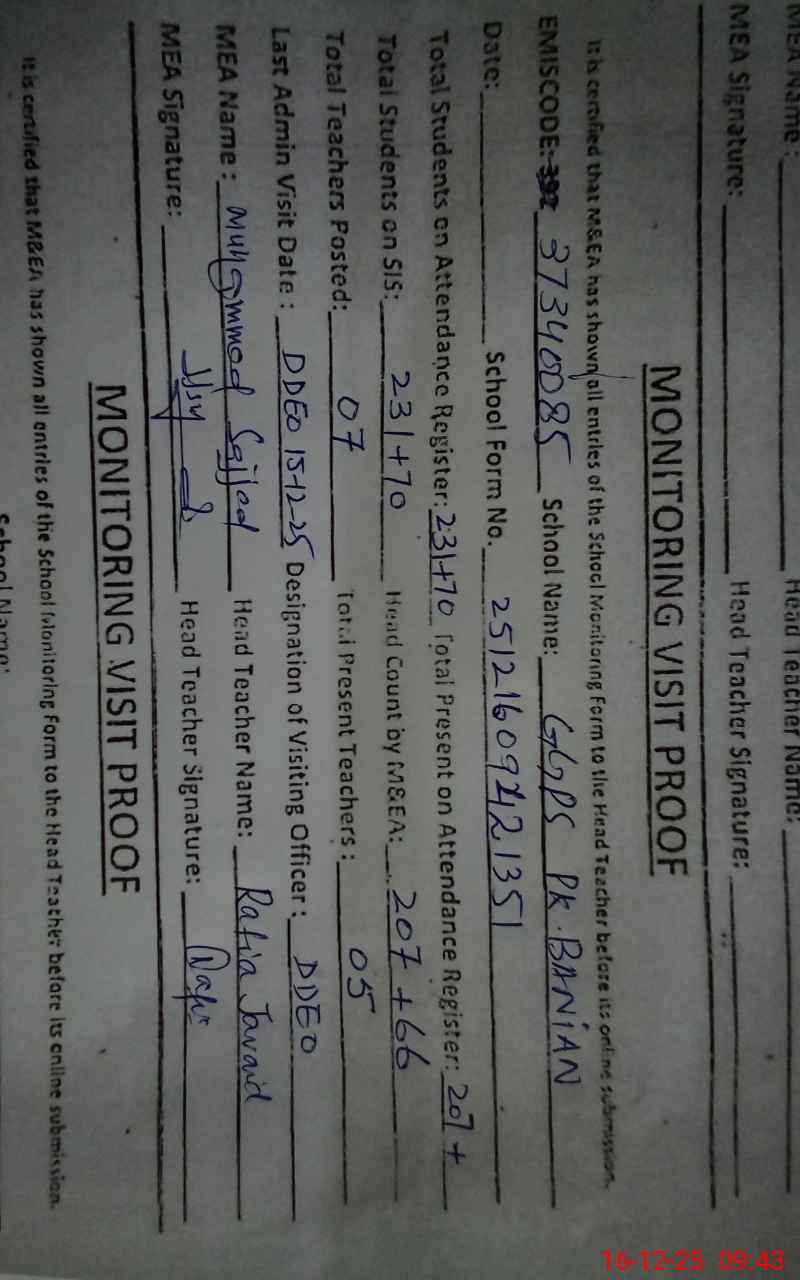 MEA Name : Head Teacher Name:
MEA Signature: Head Teacher Signature:
MONITORING VISIT PROOF
It is certified that M&EA has shown all entries of the School Monitoring Form to the Head Teacher before its online submission.
EMISCODE: 37340085 School Name: GGPS PK. BANIAN
Date: School Form No. 25121609421351
Total Students on Attendance Register: 231+70 Total Present on Attendance Register: 207 +
Total Students on SIS: 231+70 Head Count by M&EA: 207 +66
Total Teachers Posted: 07 Total Present Teachers : 05
Last Admin Visit Date : DDEO 15-12-25 Designation of Visiting Officer : DDEO
MEA Name : Muhammad Sajjad Head Teacher Name: Rafia Javaid
MEA Signature: Head Teacher Signature:
MONITORING VISIT PROOF
It is certified that M&EA has shown all entries of the School Monitoring Form to the Head Teacher before its online submission.
School Name:
16-12-25 09:43